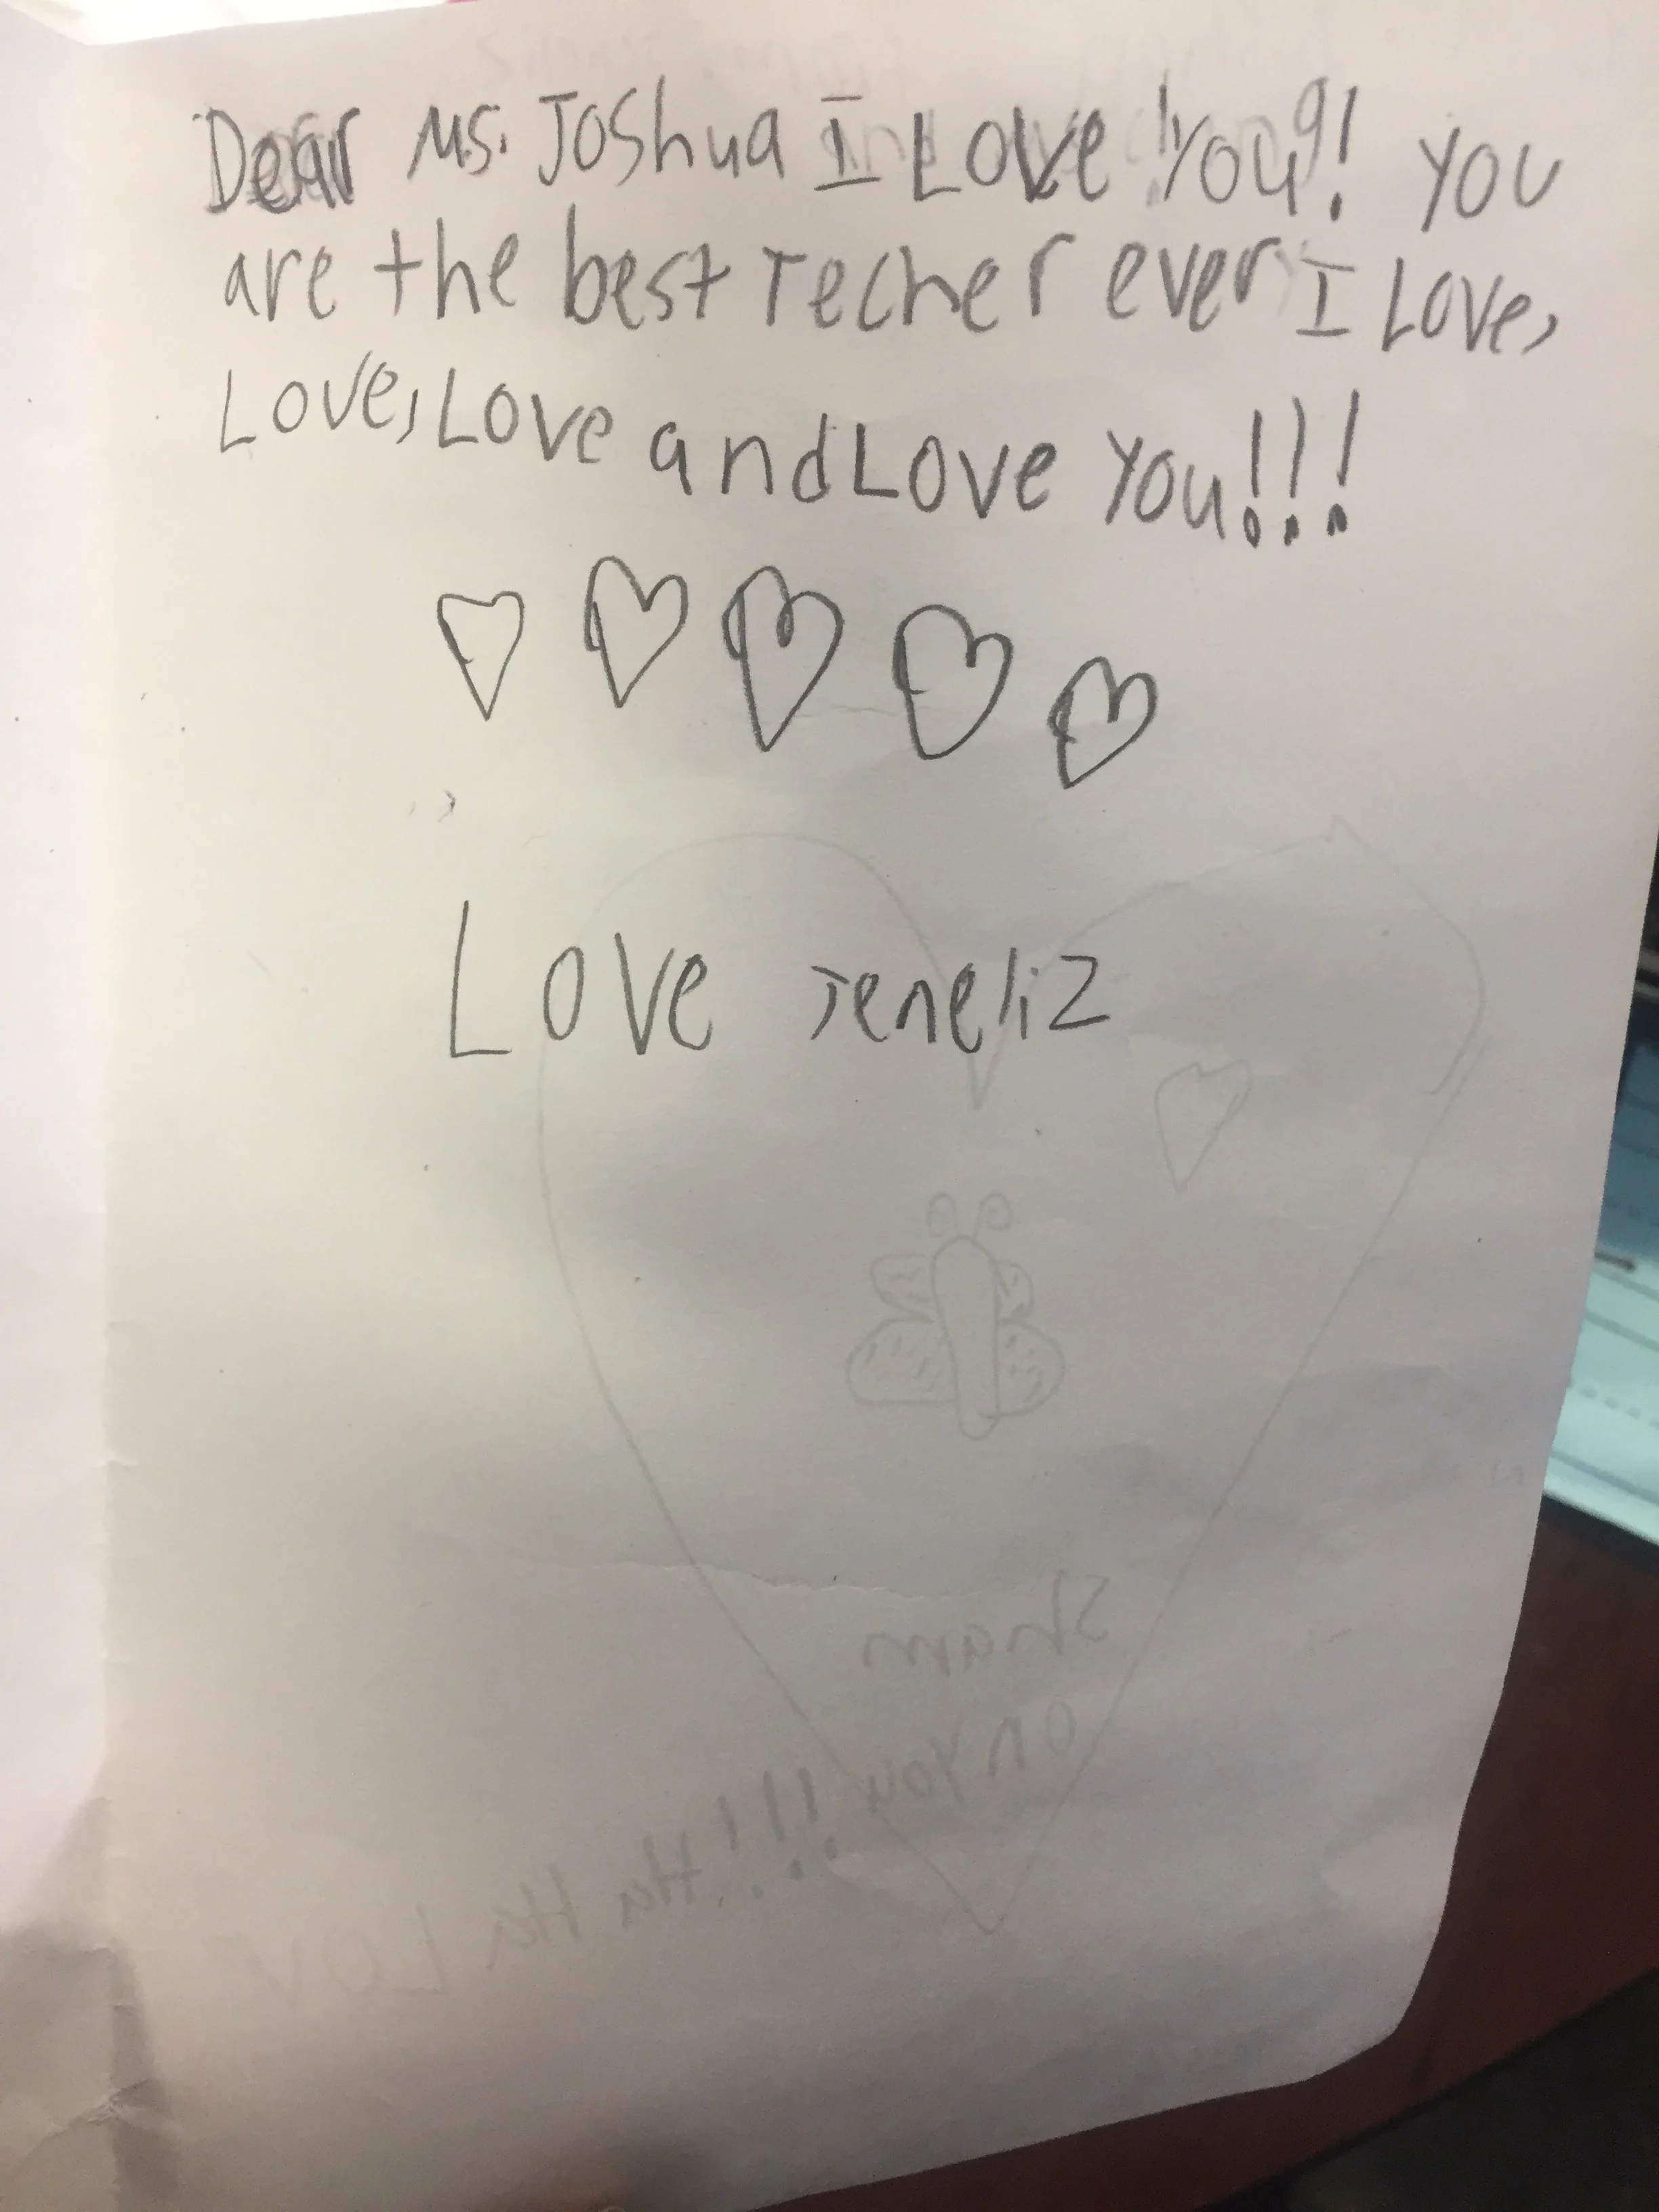 Dear Ms. Joshua I Love You! You
are the best Techer ever I Love,
Love, Love and Love You!!!
Love Jeneliz
Sham
on You!!! Ha Ha Lov